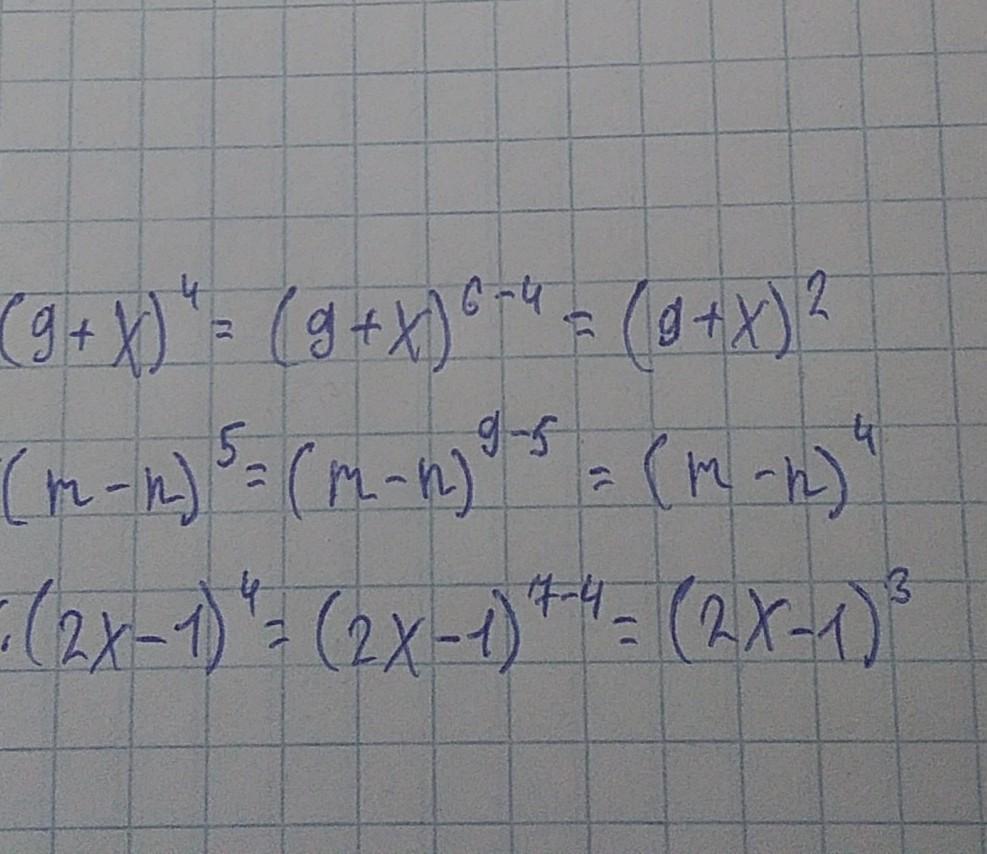 (y+x)⁴ = (y+x)⁶⁻⁴ = (y+x)²
(m-n)⁵ = (m-n)⁹⁻⁵ = (m-n)⁴
:(2x-1)⁴ = (2x-1)⁷⁻⁴ = (2x-1)³